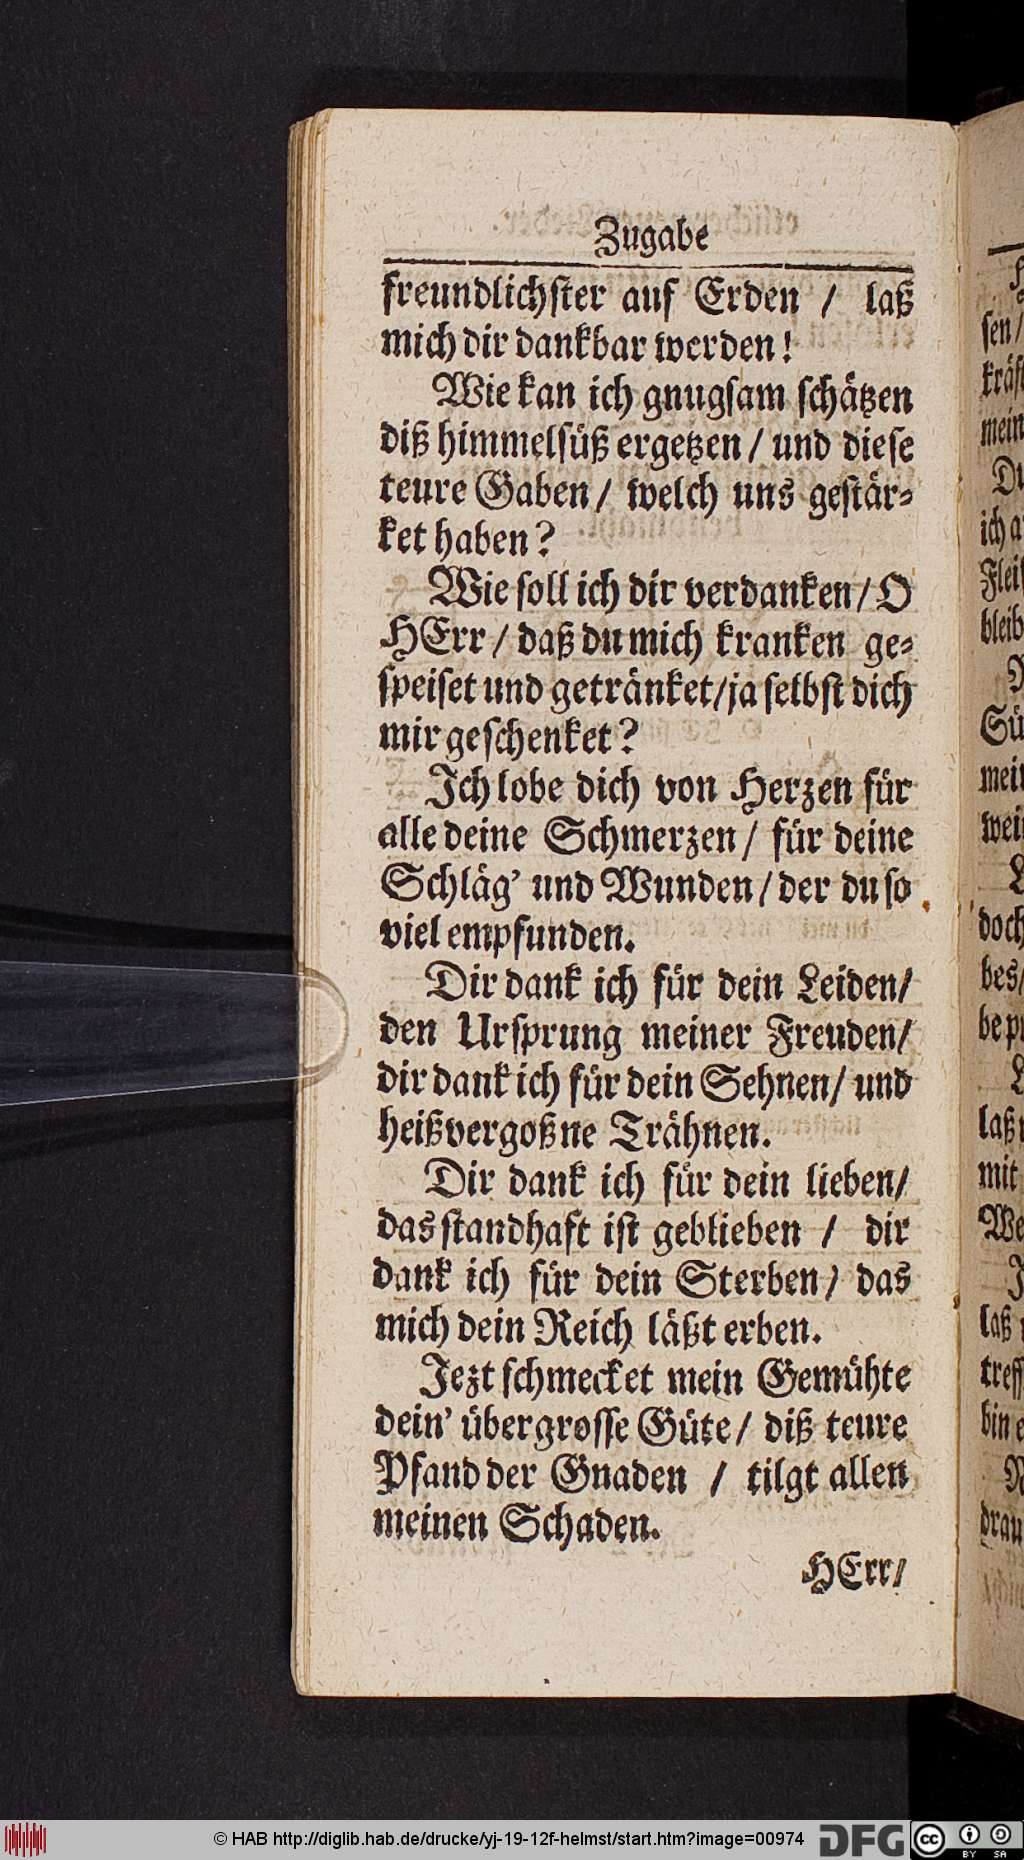 Zugabe
freundlichster auf Erden / laß
mich dir dankbar werden!
Wie kan ich gnugsam schätzen
diß himmelsüß ergetzen / und diese
teure Gaben / welch uns gestär-
ket haben?
Wie soll ich dir verdanken / O
HErr / daß du mich kranken ge-
speiset und getränket/ ja selbst dich
mir geschenket?
Ich lobe dich von Herzen für
alle deine Schmerzen / für deine
Schläg' und Wunden / der du so
viel empfunden.
Dir dank ich für dein Leiden/
den Ursprung meiner Freuden/
dir dank ich für dein Sehnen/ und
heißvergoßne Trähnen.
Dir dank ich für dein lieben/
das standhaft ist geblieben / dir
dank ich für dein Sterben/ das
mich dein Reich läßt erben.
Jezt schmecket mein Gemühte
dein' übergrosse Güte/ diß teure
Pfand der Gnaden / tilgt allen
meinen Schaden.
HErr/
sen/
mein
Du
ich a
bleib
Sü
doch
bes/
laß
mit
We
laß
treff
bin e
drau
© HAB http://diglib.hab.de/drucke/yj-19-12f-helmst/start.htm?image=00974
DFG
cc
BY SA